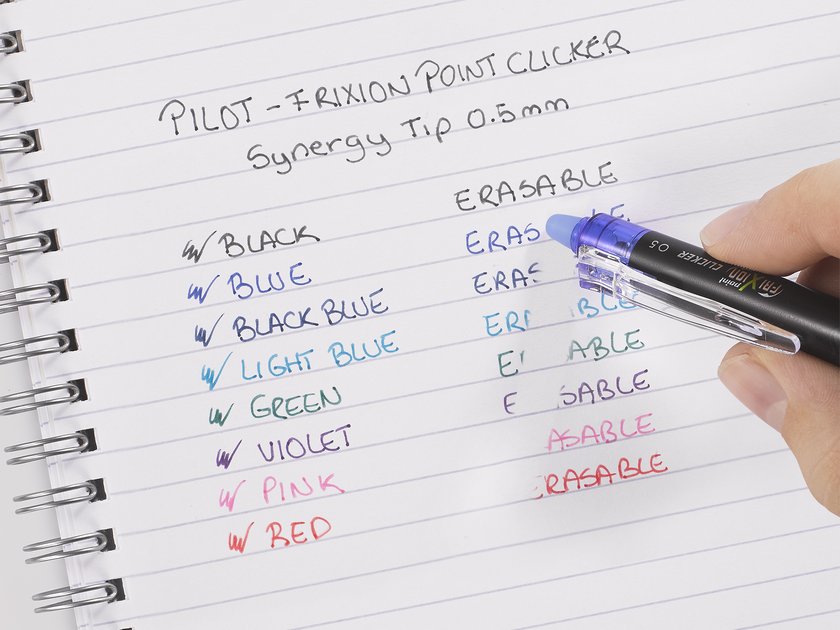 PILOT - FRIXION POINT CLICKER
Synergy Tip 0.5mm
BLACK
BLUE
BLACK BLUE
LIGHT BLUE
GREEN
VIOLET
PINK
RED
ERASABLE
ERAS LE
ERAS
ER BLE
E ABLE
E SABLE
ASABLE
ERASABLE
FRIXION point CLICKER 0.5